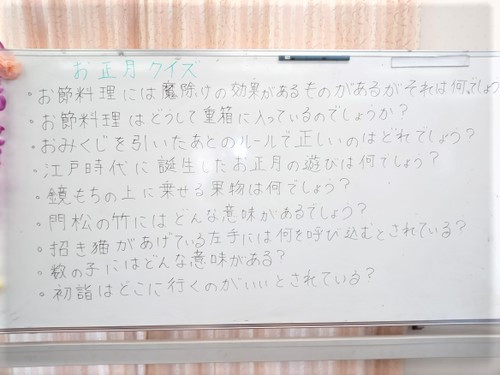 お正月クイズ
・お節料理には魔除けの効果があるものがあるがそれは何でしょう
・お節料理はどうして重箱に入っているのでしょうか？
・おみくじを引いたあとのルールで正しいのはどれでしょう？
・江戸時代に誕生したお正月の遊びは何でしょう？
・鏡もちの上に乗せる果物は何でしょう？
・門松の竹にはどんな意味があるでしょう？
・招き猫があげている左手には何を呼び込むとされている？
・数の子にはどんな意味がある？
・初詣はどこに行くのがいいとされている？